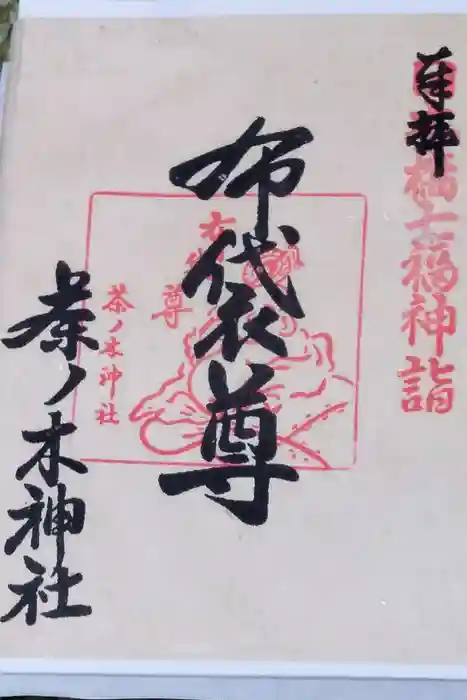 奉拝
橋七福神詣
布袋尊
布
尊
茶ノ木神社
茶ノ木神社